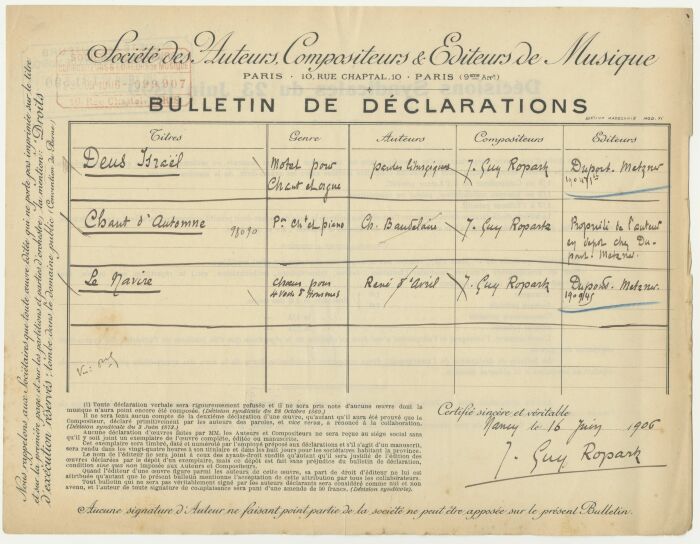 Société des Auteurs, Compositeurs & Editeurs de Musique
PARIS · 10, RUE CHAPTAL, 10 · PARIS (9ème Arrt)
BULLETIN DE DÉCLARATIONS
Titres Genre Auteurs Compositeurs Editeurs
Deus Israël Motet pour Chant et orgue paroles liturgiques J. Guy Ropartz Dupont-Metzner
Chant d'Automne 98090 Pr Cht et piano Ch. Baudelaire J. Guy Ropartz Propriété de l'auteur
en depot chez Du-
pont-Metzner.
Le Navire Chœur pour
4 voix d'hommes René d'Avril J. Guy Ropartz Dupont-Metzner
(1) Toute déclaration verbale sera rigoureusement refusée et il ne sera pris note d'aucune œuvre dont la
musique n'aura point encore été composée. (Décision syndicale du 28 Octobre 1869.)
Il ne sera tenu aucun compte de la deuxième déclaration d'une œuvre, qu'autant qu'il aura été prouvé que le
Compositeur, déclaré primitivement par les auteurs des paroles, et vice versa, a renoncé à la collaboration.
(Décision syndicale du 3 Juin 1873.)
Aucune déclaration d'œuvres faites par MM. les Auteurs et Compositeurs ne sera reçue au siège social sans
qu'il y soit joint un exemplaire de l'œuvre complète, éditée ou manuscrite.
Cet exemplaire sera timbré, daté et numéroté par l'employé préposé aux déclarations et s'il s'agit d'un manuscrit,
sera rendu dans les vingt-quatre heures à un titulaire et dans les huit jours pour les sociétaires habitant la province.
Le nom de l'éditeur ne sera joint à ceux des ayants-droit susdits qu'autant qu'il sera justifié de l'édition des
œuvres déclarées par le dépôt d'un exemplaire, mais ce dépôt est fait sans préjudice du bulletin de déclaration,
condition sine qua non imposée aux Auteurs et Compositeurs.
Quand l'éditeur d'une œuvre figure parmi les auteurs de cette œuvre, sa part de droit d'éditeur ne lui est
attribuée qu'autant que le présent bulletin mentionne l'acceptation de cette attribution par tous les collaborateurs.
Tout bulletin qui ne sera pas véritablement signé par les auteurs déclarants sera considéré comme nul et non
avenu, et l'auteur de toute signature de complaisance sera puni d'une amende de 50 francs. (Décision syndicale).
Certifié sincère et véritable
Nancy le 16 Juin 1906
J. Guy Ropartz
Aucune signature d'Auteur ne faisant point partie de la société ne peut être apposée sur le présent Bulletin.
Nous rappelons aux Sociétaires que toute œuvre éditée qui ne porte pas imprimée sur le titre
et sur la première page et sur les partitions et parties d'orchestre, la mention: "Droits
d'exécution réservés" tombe dans le domaine public (Convention de Berne)